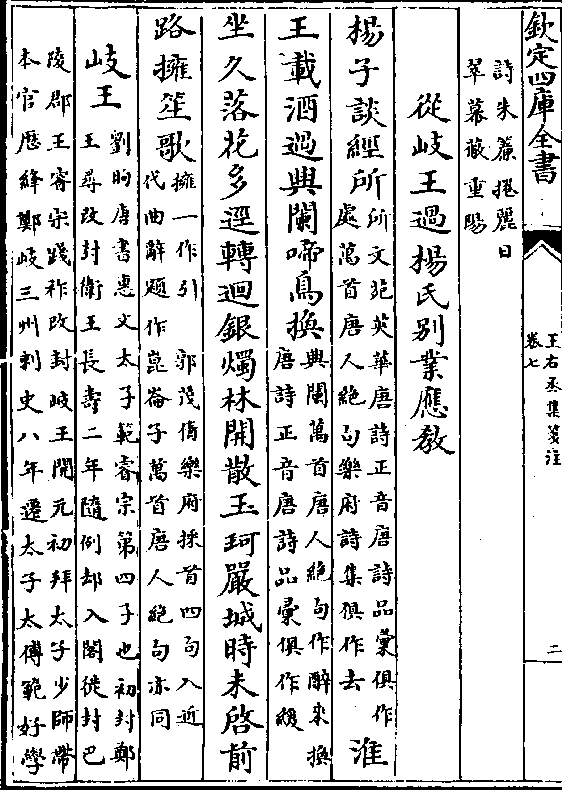 欽定四庫全書
王右丞集箋注
卷七
二
詩朱簾捲麗日
翠幕蔽重陽
從岐王過楊氏别業應教
楊子談經所
所文苑英華唐詩正音唐詩品彙俱作
處萬首唐人絶句樂府詩集俱作去
淮
王載酒過興闌啼鳥換
興闌萬首唐人絶句作醉來換
唐詩正音唐詩品彙俱作緩
坐久落花多逕轉迴銀燭林開散玉珂嚴城時未啓前
路擁笙歌
擁一作引 郭茂倩樂府採首四句入近
代曲辭題作崑崙子萬首唐人絶句亦同
岐王
劉昫唐書惠文太子範睿宗第四子也初封鄭
王尋改封衛王長壽二年隨例却入閣徙封巴
陵郡王睿宗踐祚改封岐王開元初拜太子少師帶
本官歷絳鄭岐三州刺史八年遷太子太傅範好學